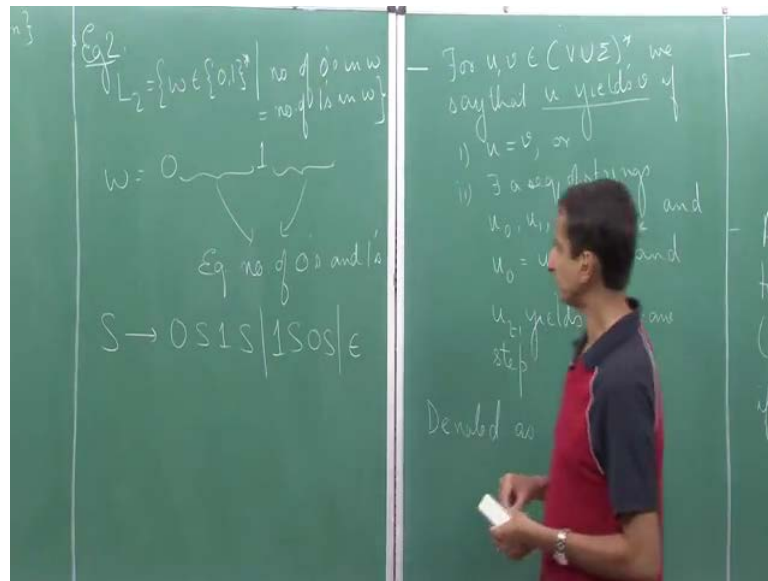 n}
Eg 2.
L₂ = {w ∈ {0,1}* | no of 0's in w
= no. of 1's in w}
w = 0 1
Eq no of 0's and 1's
S → 0S1S | 1S0S | ε
— For u, v ∈ (V ∪ Σ)* we
say that u yields v if
i) u = v, or
ii) ∃ a seq of strings
u₀, u₁, and
u₀ = u and
yields one
step
Denoted as